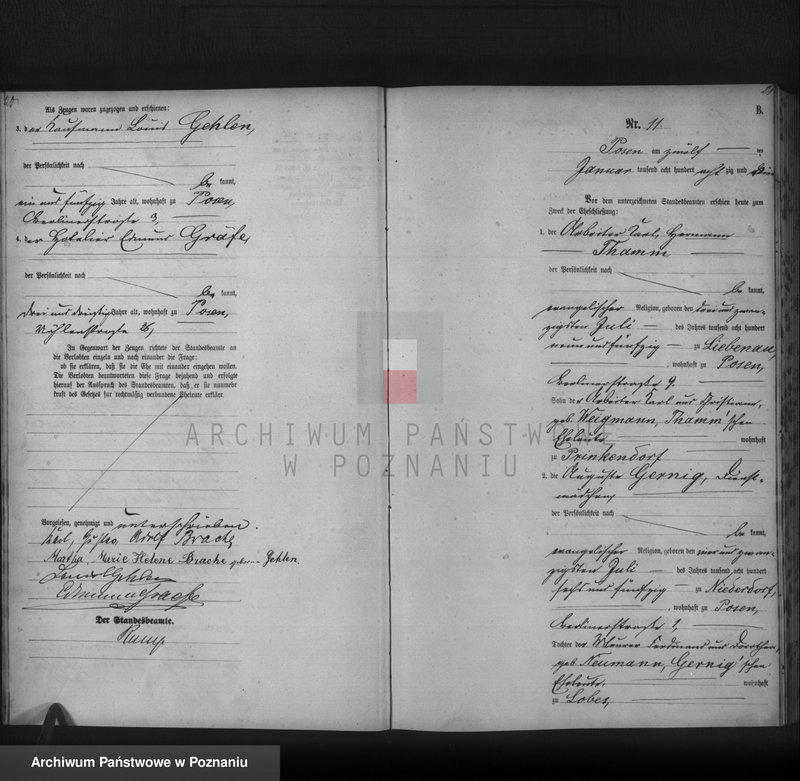 20.
Als Zeugen waren zugezogen und erschienen:
3. der Kaufmann Louis Gehlen,
der Persönlichkeit nach
be kannt,
ein und fünfzig Jahre alt, wohnhaft zu Posen,
Berlinerstraße 3,
4. der Hotelier Edmund Gräfe,
der Persönlichkeit nach
be kannt,
drei und dreißig Jahre alt, wohnhaft zu Posen,
Mühlenstraße 26,
In Gegenwart der Zeugen richtete der Standesbeamte an
die Verlobten einzeln und nach einander die Frage:
ob sie erklären, daß sie die Ehe mit einander eingehen wollen.
Die Verlobten beantworteten diese Frage bejahend und erfolgte
hierauf der Ausspruch des Standesbeamten, daß er sie nunmehr
kraft des Gesetzes für rechtmäßig verbundene Eheleute erkläre.
Vorgelesen, genehmigt und unterschrieben.
Adolf Brache
Martha, Marie Helene Brache geborene Gehlen.
Louis Gehlen
Edmund Graefe
Der Standesbeamte.
21
B.
Nr. 11.
Posen am zwölf ten
Januar tausend acht hundert acht zig und
Vor dem unterzeichneten Standesbeamten erschien heute zum
Zweck der Eheschließung:
1. der Arbeiter Karl, Hermann
Thamm
der Persönlichkeit nach
be kannt,
evangelischer Religion, geboren den drei und zwan-
zigsten Juli des Jahres tausend acht hundert
neun und fünfzig zu Liebenau,
, wohnhaft zu Posen,
Berlinerstraße 9.
Sohn der Arbeiter Karl und Christiane,
geb. Weigmann, Thamm'schen
Eheleute wohnhaft
zu Prinkendorf
2. die Auguste Gernig, Dienst-
mädchen,
der Persönlichkeit nach
be kannt,
evangelischer Religion, geboren den vier und zwan-
zigsten Juli des Jahres tausend acht hundert
sechs und fünfzig zu Niederdorf,
, wohnhaft zu Posen,
Berlinerstraße 9,
Tochter der Maurer Ferdinand und Dorothea,
geb. Neumann, Gernig'schen
Eheleute. wohnhaft
zu Lobes,
ARCHIWUM PAŃSTWOWE
W POZNANIU
Archiwum Państwowe w Poznaniu